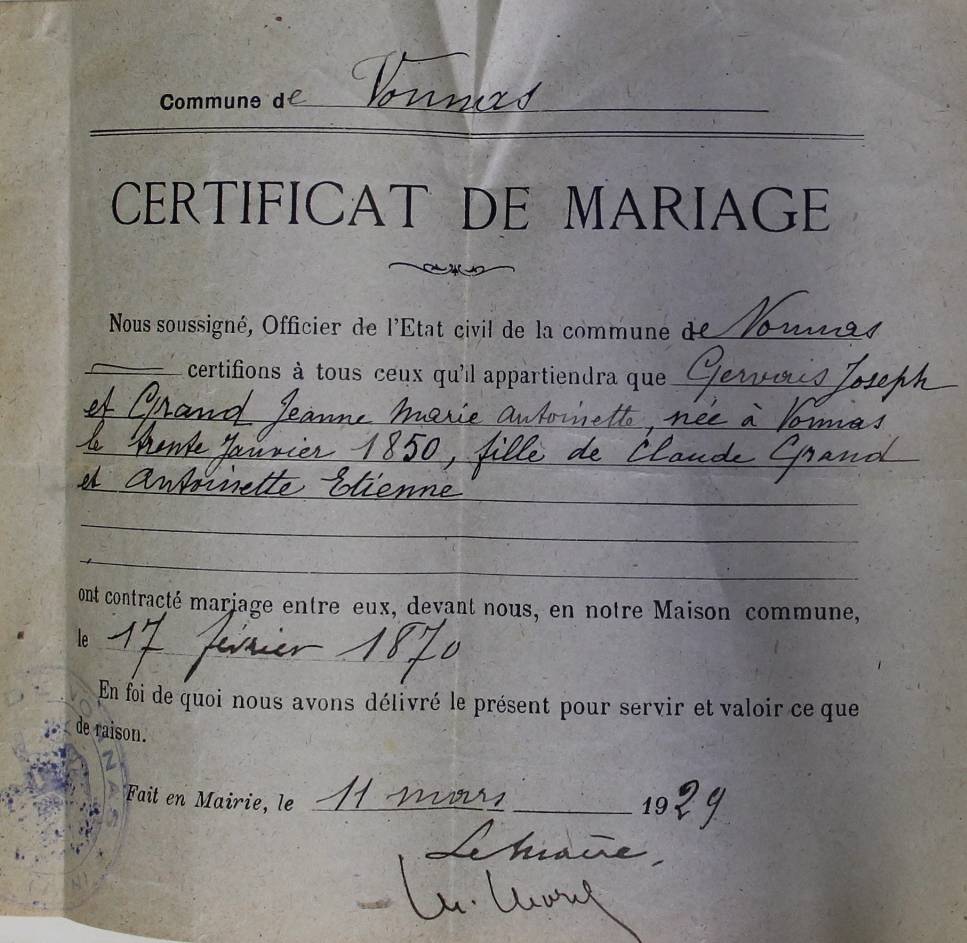 Commune de Vonnas
CERTIFICAT DE MARIAGE
Nous soussigné, Officier de l'Etat civil de la commune de Vonnas
certifions à tous ceux qu'il appartiendra que Gervais Joseph
et Grand Jeanne Marie Antoinette, née à Vonnas
le trente Janvier 1850, fille de Claude Grand
et Antoinette Etienne
ont contracté mariage entre eux, devant nous, en notre Maison commune,
le 17 février 1870
En foi de quoi nous avons délivré le présent pour servir et valoir ce que
de raison.
Fait en Mairie, le 11 mars 1929
Le Maire,
VONNAS